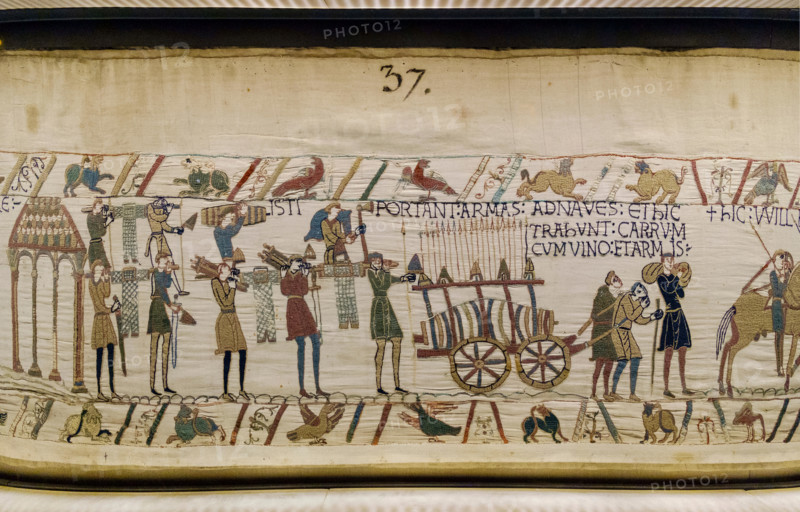 PHOTO12
37.
PHOTO12
RE:
ISTI PORTANT: ARMAS: ADNAVES: ET hIC
TRAhUNT: CARRVM
CVM VINO: ET ARMIS:
† hIC: WILL
PHOTO12